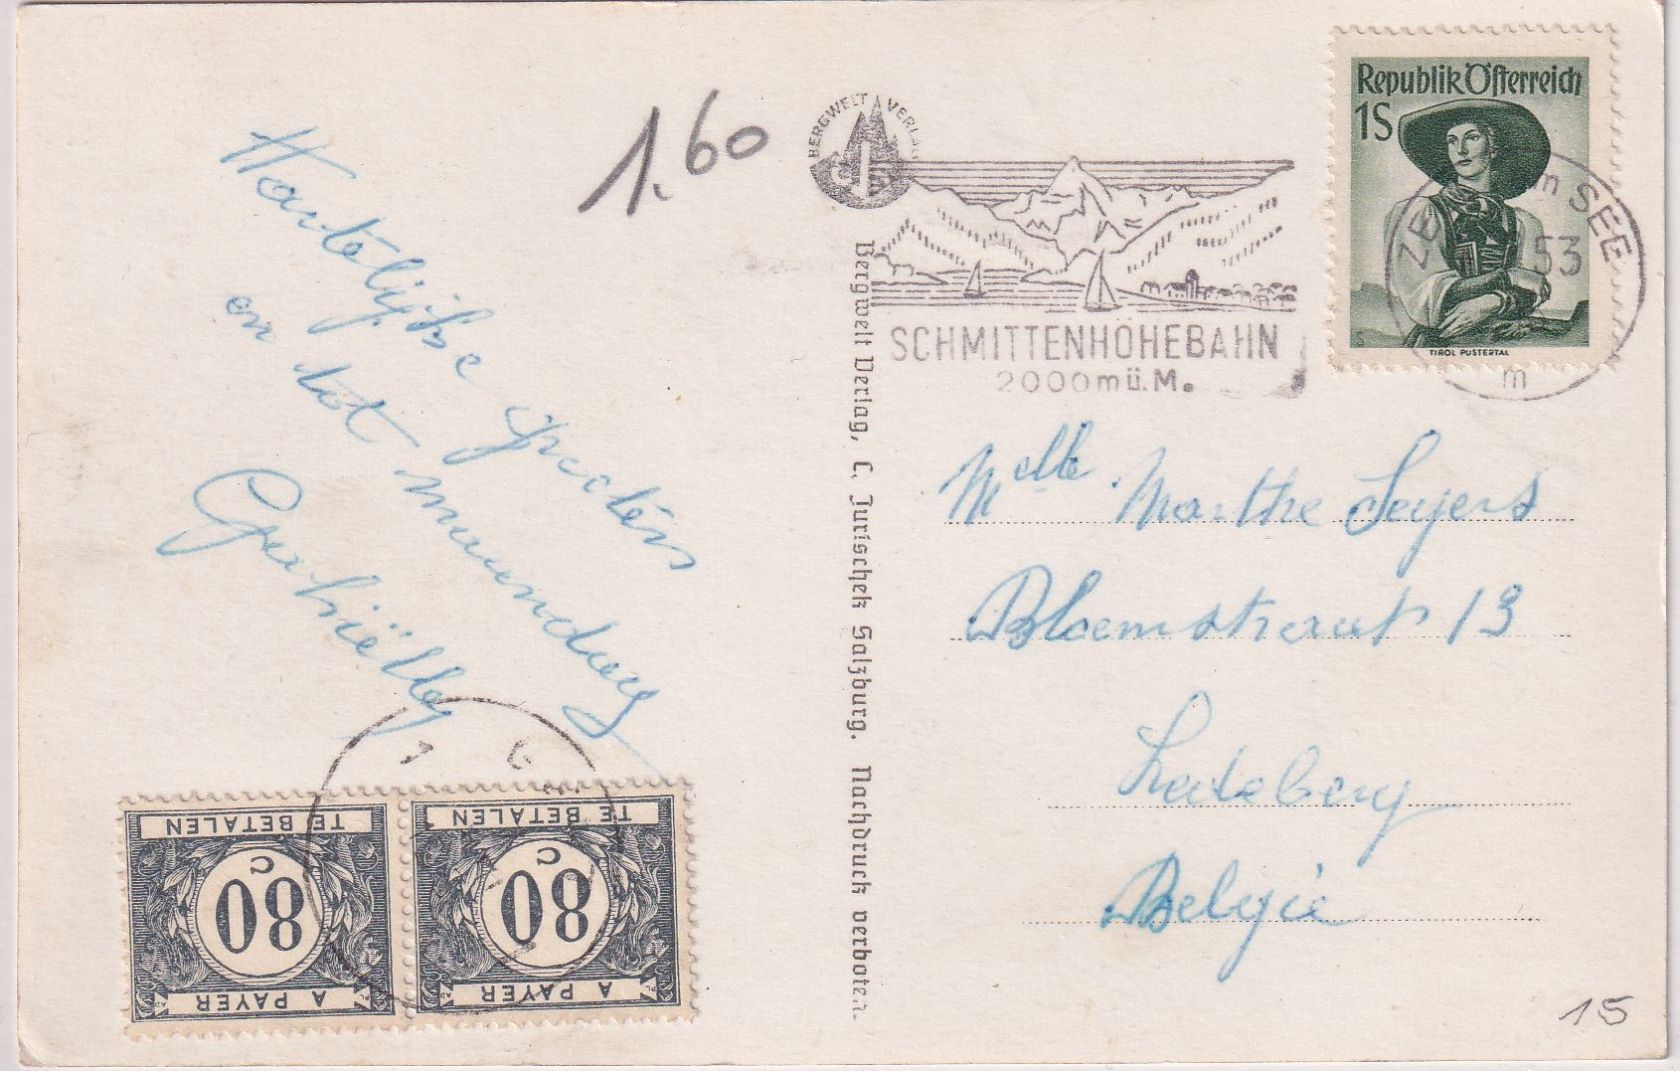 1.60
BERGWELT VERLAG
Republik Österreich
1S
TIROL PUSTERTAL
ZELL am SEE
53
m
SCHMITTENHÖHEBAHN
2000 m ü. M.
Hartelijke groeten
en tot maandag
Gabriëlle
Bergwelt Verlag, C. Jurischek Salzburg. Nachdruck verboten.
Melle Marthe Seyers
Bloemstraat 13
Ledeberg
België
TE BETALEN
80
C
A PAYER
TE BETALEN
80
C
A PAYER
15